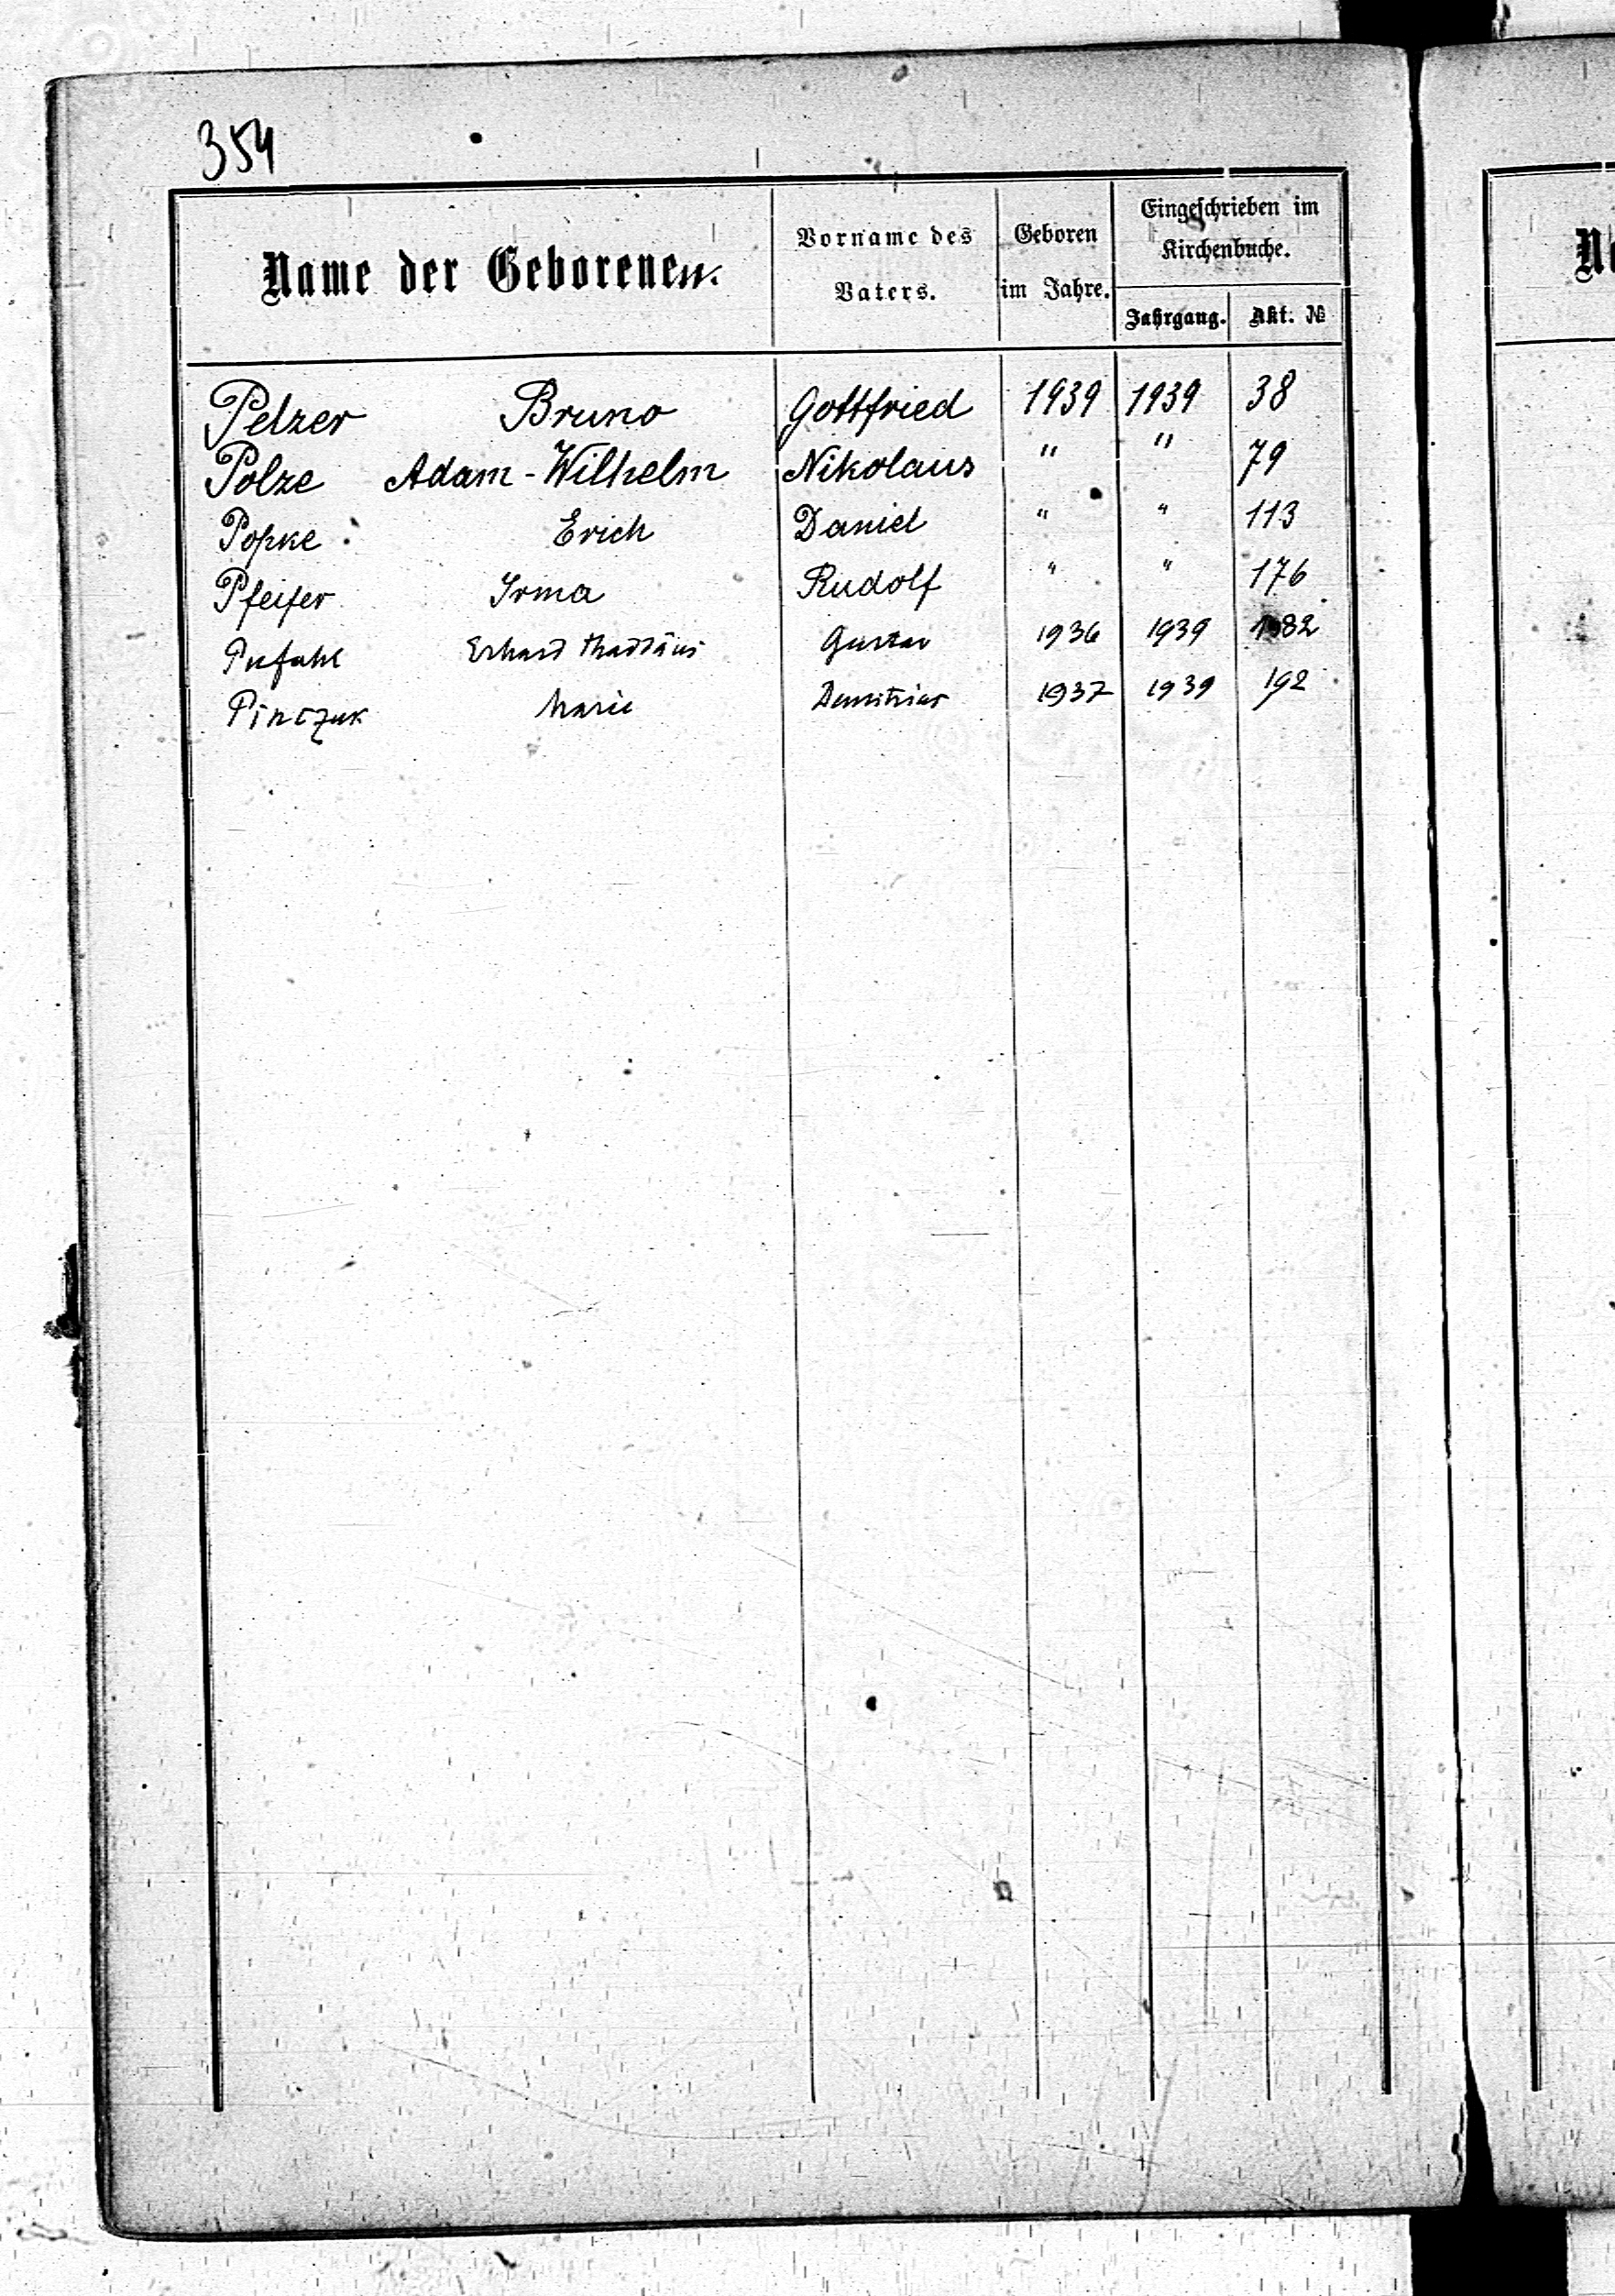 354
Name der Geborenen.
Vorname des Vaters.
Geboren im Jahre.
Eingeschrieben im Kirchenbuche.
Jahrgang. Akt. №
Pelzer Bruno Gottfried 1939 1939 38
Polze Adam-Wilhelm Nikolaus " " 79
Popke Erich Daniel " " 113
Pfeifer Irma Rudolf " " 176
Pufahl Erhard Thaddäus Gustav 1936 1939 182
Pinczuk Marie Demitrius 1937 1939 192